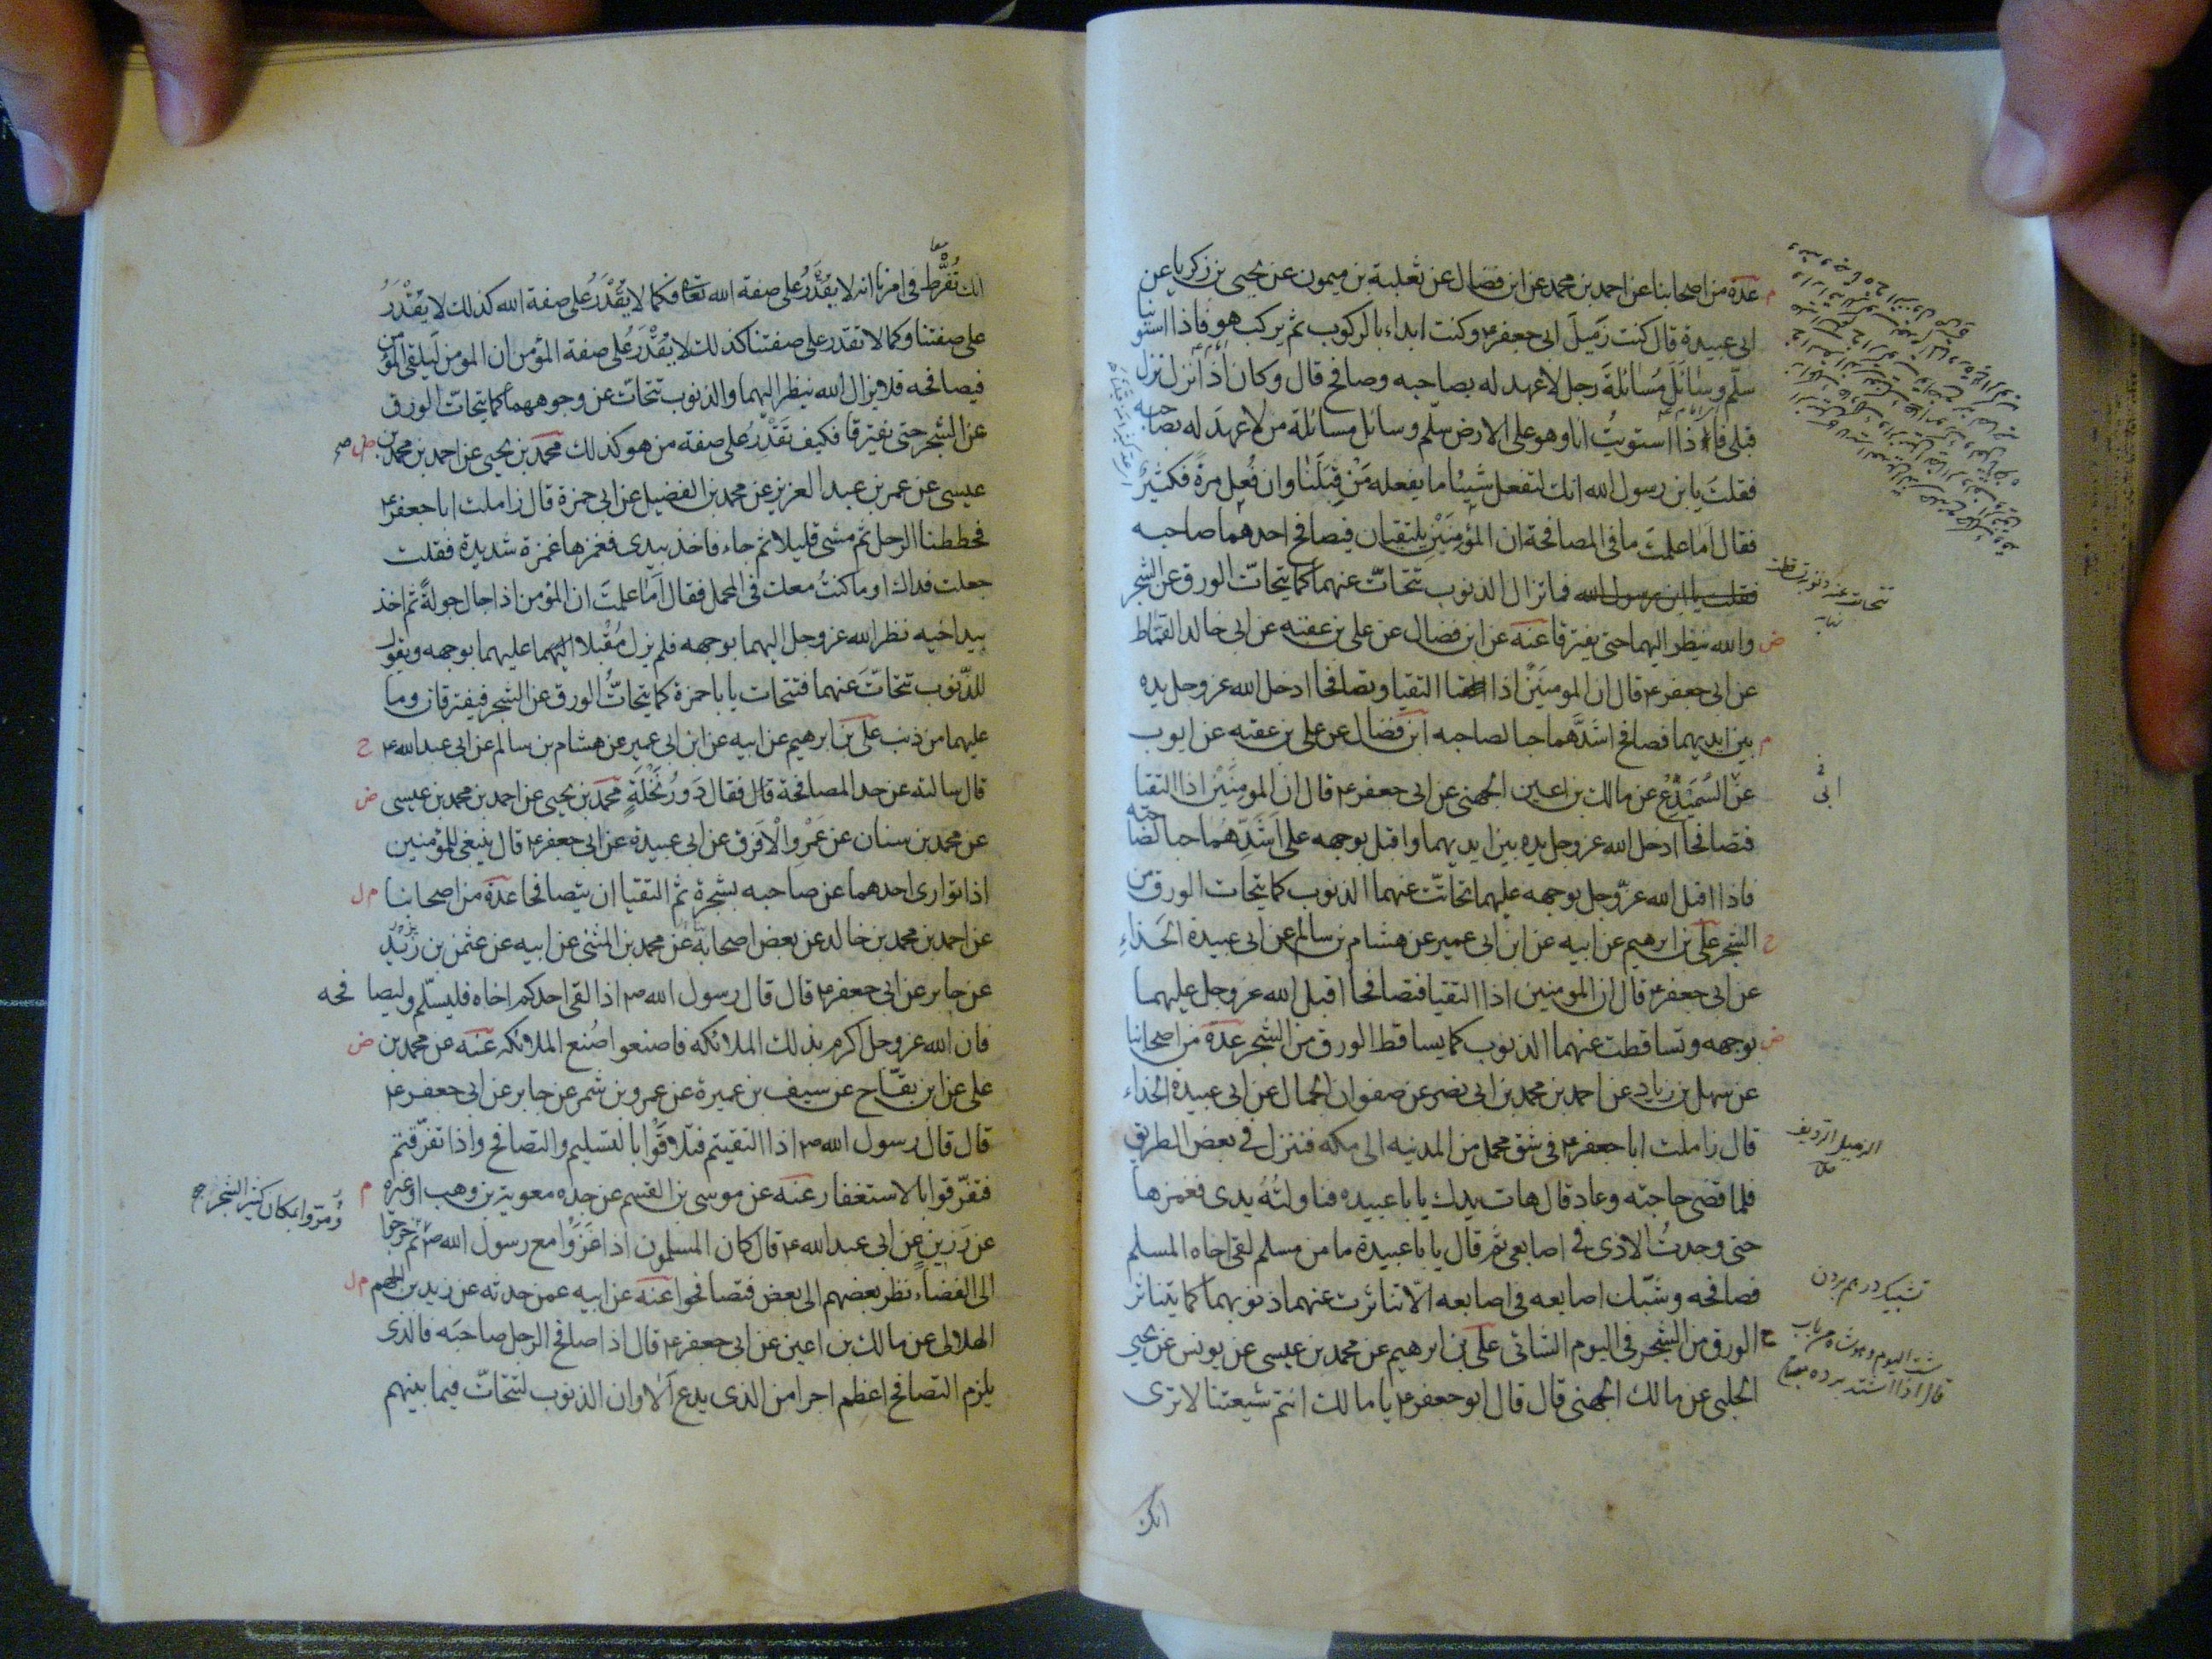 عدة من اصحابنا عن احمد بن محمد عن ابن فضال عن ثعلبة بن ميمون عن يحيى بن زكريا عن
ابى عبيدة قال كنت زميل ابى جعفر ع وكنت ابداء بالركوب ثم يركب هو فاذا استوينا
سلّم وسائل مسائلة رجل لا عهد له بصاحبه وصافح قال وكان اذا نزل نزل
قبلى فاذا استويت انا وهو على الارض سلم وسائل مسائلة من لا عهد له بصاحبه
فقلت يا بن رسول الله انك لتفعل شيئا ما يفعله من قبلنا وان فعل مرة فكثير
فقال اما علمت ما فى المصافحة ان المؤمنين يلتقيان فيصافح احدهما صاحبه
فقلت يا ابن رسول الله فما تزال الذنوب تتحاتّ عنهما كما يتحاتّ الورق عن الشجر
والله ينظر اليهما حتى يفترقا عنه عن ابن فضال عن على بن عقبه عن ابى خالد القماط
عن ابى جعفر ع قال ان المومنين اذا التقيا وتصافحا ادخل الله عز وجل يده
بين ايديهما فصافح اشدّهما حبا لصاحبه ابن فضال عن على بن عقبه عن ايوب
عن السميدع عن مالك بن اعين الجهنى عن ابى جعفر ع قال ان المومنين اذا التقيا
فتصافحا ادخل الله عز وجل يده بين ايديهما واقبل بوجهه على اشدّهما حبا لصاحبه
فاذا اقبل الله عزّ وجل بوجهه عليهما تحاتّت عنهما الذنوب كما يتحات الورق من
الشجر على بن ابرهيم عن ابيه عن ابن ابى عمير عن هشام بن سالم عن ابى عبيدة الحذاء
عن ابى جعفر ع قال ان المومنين اذا التقيا فتصافحا اقبل الله عز وجل عليهما
بوجهه وتساقطت عنهما الذنوب كما يساقط الورق من الشجر عدة من اصحابنا
عن سهل بن زياد عن احمد بن محمد بن ابى نصر عن صفوان الجمال عن ابى عبيدة الحذاء
قال زاملت ابا جعفر ع فى شق محمل من المدينه الى مكه فنزل فى بعض الطريق
فلما قضى حاجته وعاد قال هات يدك يا با عبيده فناولته يدى فغمزها
حتى وجدت الاذى فى اصابعى ثم قال يا با عبيدة ما من مسلم لقى اخاه المسلم
فصافحه وشبّك اصابعه فى اصابعه الا تناثرت عنهما ذنوبهما كما يتناثر
الورق من الشجر فى اليوم الشاتى على بن ابرهيم عن محمد بن عيسى عن يونس عن يحيى
الحلبى عن مالك الجهنى قال قال ابو جعفر ع يا مالك انتم شيعتنا لا ترى
انك
فى
ابى
الزميل الرديف
تشبيك در هم بردن
انك تفرّط فى امرنا انه لا يقدّر على صفة الله تعالى فكما لا يقدر على صفة الله كذلك لا يقدر
على صفتنا وكما لا تقدر على صفتنا كذلك لا يقدر على صفة المؤمن ان المومن ليلقى المؤمن
فيصافحه فلا يزال الله ينظر اليهما والذنوب تتحاتّ عن وجوههما كما يتحاتّ الورق
عن الشجر حتى يفترقا فكيف تقدر على صفة من هو كذلك محمد بن يحيى عن احمد بن محمد بن
عيسى عن عمر بن عبد العزيز عن محمد بن الفضيل عن ابى حمزة قال زاملت ابا جعفر ع
فحططنا الرحل ثم مشى قليلا ثم جاء فاخذ بيدى فغمزها غمزة شديدة فقلت
جعلت فداك او ما كنت معك فى المحمل فقال اما علمت ان المؤمن اذا جال جولة ثم اخذ
بيد اخيه نظر الله عز وجل اليهما بوجهه فلم يزل مقبلا عليهما بوجهه ويقول
للذّنوب تتحاتّ عنهما فتتحات يا با حمزة كما يتحاتّ الورق عن الشجر فيفترقان وما
عليهما من ذنب على بن ابرهيم عن ابيه عن ابن ابى عمير عن هشام بن سالم عن ابى عبد الله ع
قال سالته عن حد المصافحة قال فقال دور نخلة محمد بن يحيى عن احمد بن محمد بن عيسى
عن محمد بن سنان عن عمرو الافرق عن ابى عبيدة عن ابى جعفر ع قال ينبغى للمؤمنين
اذا توارى احدهما عن صاحبه بشجرة ثم التقيا ان يتصافحا عدة من اصحابنا
عن احمد بن محمد بن خالد عن بعض اصحابه عن محمد بن المثنى عن ابيه عن عثمن بن زيد
عن جابر عن ابى جعفر ع قال قال رسول الله ص اذا لقى احدكم اخاه فليسلّم وليصافحه
فان الله عز وجل اكرم بذلك الملائكه فاصنعوا صنع الملائكه عنه عن محمد بن
على عن ابن بقّاح عن سيف بن عميرة عن عمرو بن شمر عن جابر عن ابى جعفر ع
قال قال رسول الله ص اذا التقيتم فتلاقوا بالتسليم والتصافح واذا تفرّقتم
فتفرّقوا بالاستغفار عنه عن موسى بن القسم عن جده معوية بن وهب او غيره
عن رزين عن ابى عبد الله ع قال كان المسلمون اذا غزوا مع رسول الله ص ثم خرجوا
الى الفضاء نظر بعضهم الى بعض فتصافحوا عنه عن ابيه عمن حدثه عن زيد بن الجهم
الهلالى عن مالك بن اعين عن ابى جعفر ع قال اذا صافح الرجل صاحبه فالذى
يلزم التصافح اعظم اجرا من الذى يدع الا وان الذنوب لتتحاتّ فيما بينهم
ومرّوا بمكان كثير الشجر